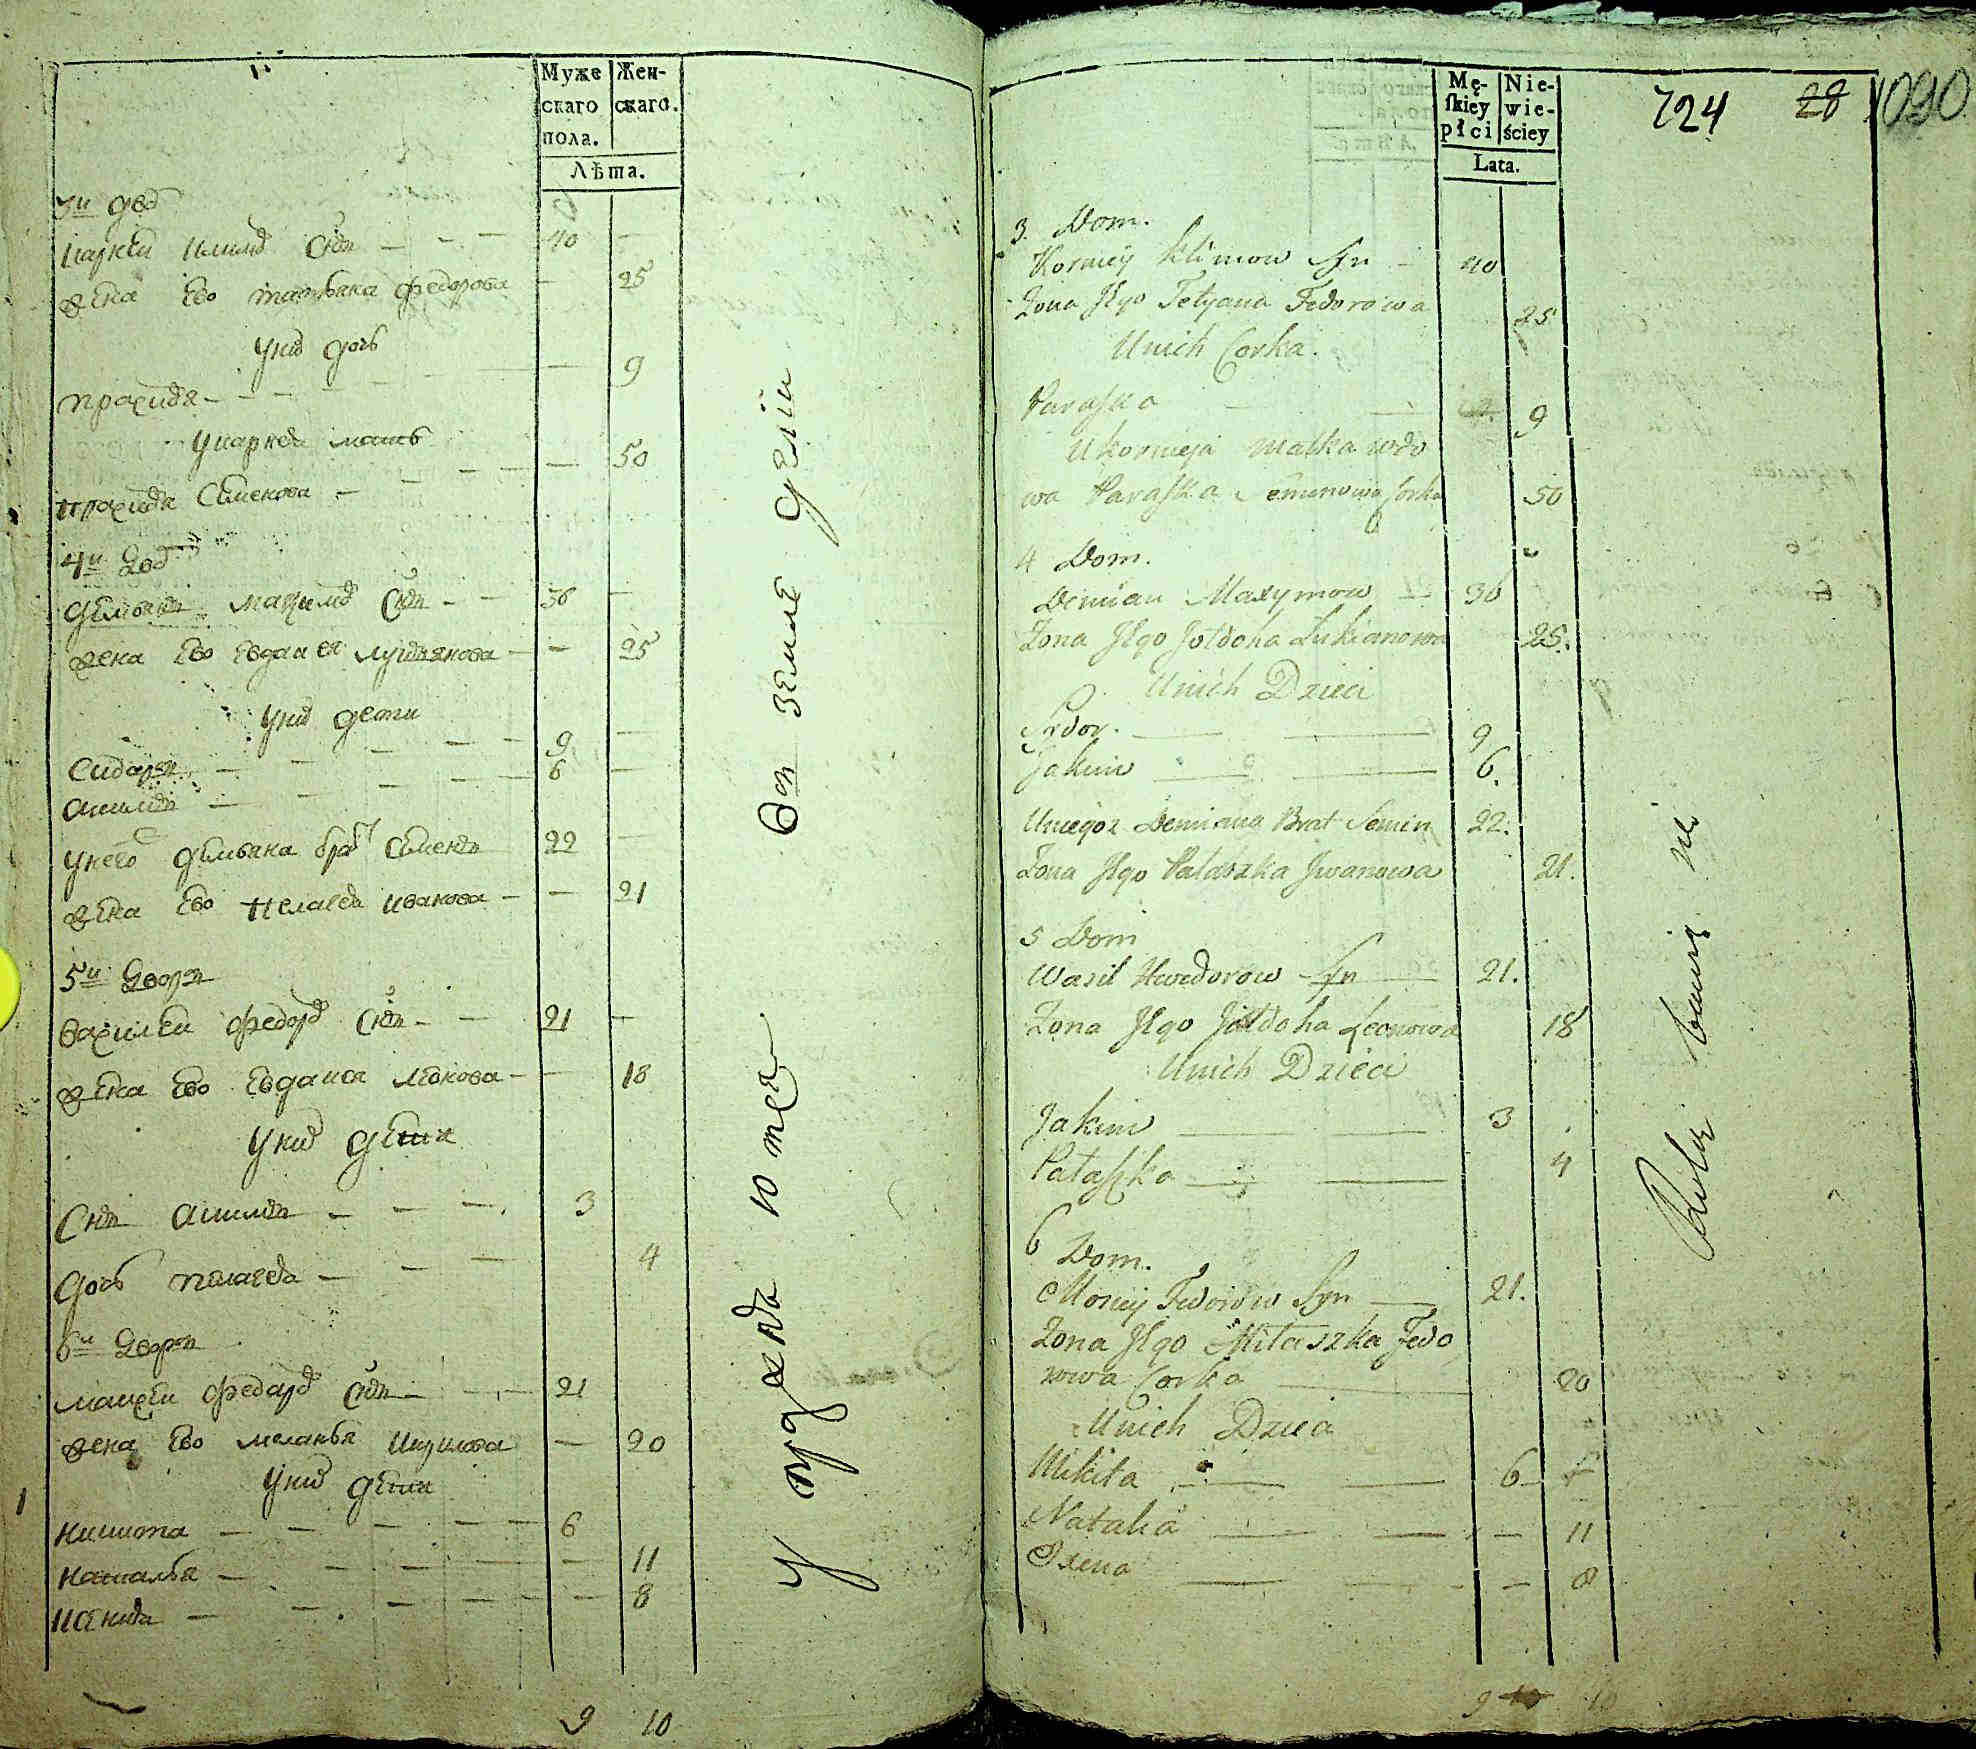 Муже
скаго
пола.
Жен-
скаго.
Лѣта.
3й дво
Карней Климов сынъ - - - 40 -
жена ево татьяна федорова - 25
у них дочь
прасковя - - - - 9
у карнея мать
прасковя Семенова - - - 50
4й Дво
демьянъ максимов сынъ - - 36 -
жена ево евдакея лукьянова - - 25
у них дети
Сидоръ - - - 9 -
Акимъ - - - 6 -
у него демьяна брат Семенъ 22 -
жена ево пелагея иванова - - 21
5й Дворъ
Василей федоров сынъ - - 21 -
жена ево евдакея леонова - - 18
у них дети
Сынъ Акимъ - - - 3
дочь пелагея - - - 4
6й Дворъ
Мойсей федоров сынъ - - 21
жена ево меланья - 20
у них дети
никита - - - - - 6
наталья - - - - 11
- - - - - - 8
9 10
въ земле
у
724 28 1090
Mę-
ſkiey
płci
Nie-
wie-
ściey
Lata.
3. Dom.
Korniey Klimow Syn - 40
Żona Jego Tetyana Fedorowa 25
Unich Corka.
Paraska - - 9
U Kornieja Matka wdo
wa Paraska Semenowa Corka 50
4 Dom.
Demian Maxymow - 36
Zona Jego Jołdoha Łukianowa 25.
Unich Dzieci
Sydor. - - 9
Jakim - - 6.
Uniegoż Demiana Brat Semen 22.
Zona Jego Palaszka Jwanowa 21.
5 Dom
Wasil Hwedorow Syn - 21.
Zona Jego Jołdoha Leonowa 18
Unich Dzieci
Jakim - - 3
Palaszka - - 4
6
Dom.
Mosiey Fedorow Syn - 21.
Zona Jego Miłaszka Fedo
rowa Corka - 20
Unich Dzieci
Mikita - - 6
Natalia - - - 11
- - - - 8
9 10 10